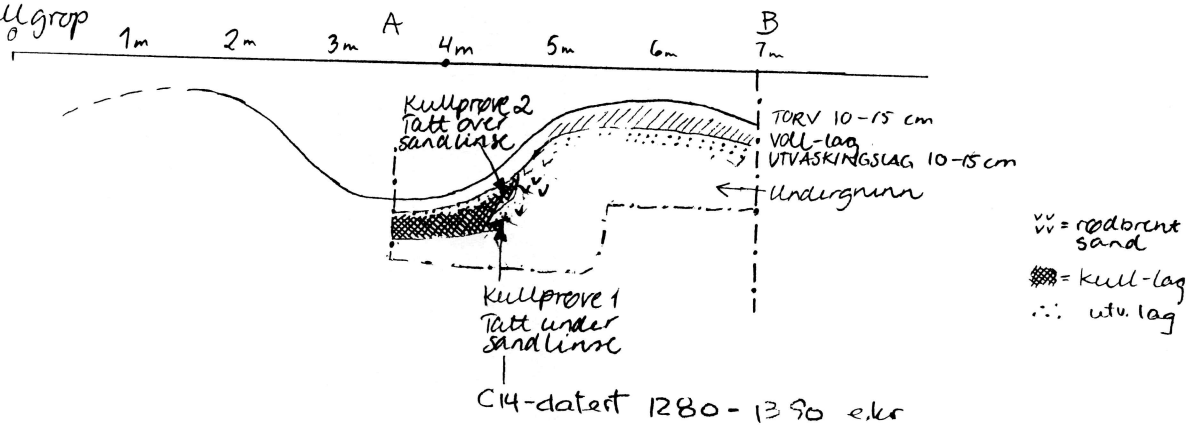 grop
A
B
0 1m 2m 3m 4m 5m 6m 7m
Kullprøve 2
Tatt over
sandlinse
TORV 10-15 cm
VOLL-lag
UTVASKINGSLAG 10-15 cm
Undergrunn
vv
vv = rødbrent
sand
= Kull-lag
utv. lag
Kullprøve 1
Tatt under
sandlinse
C14-datert 1280-1390 e.kr